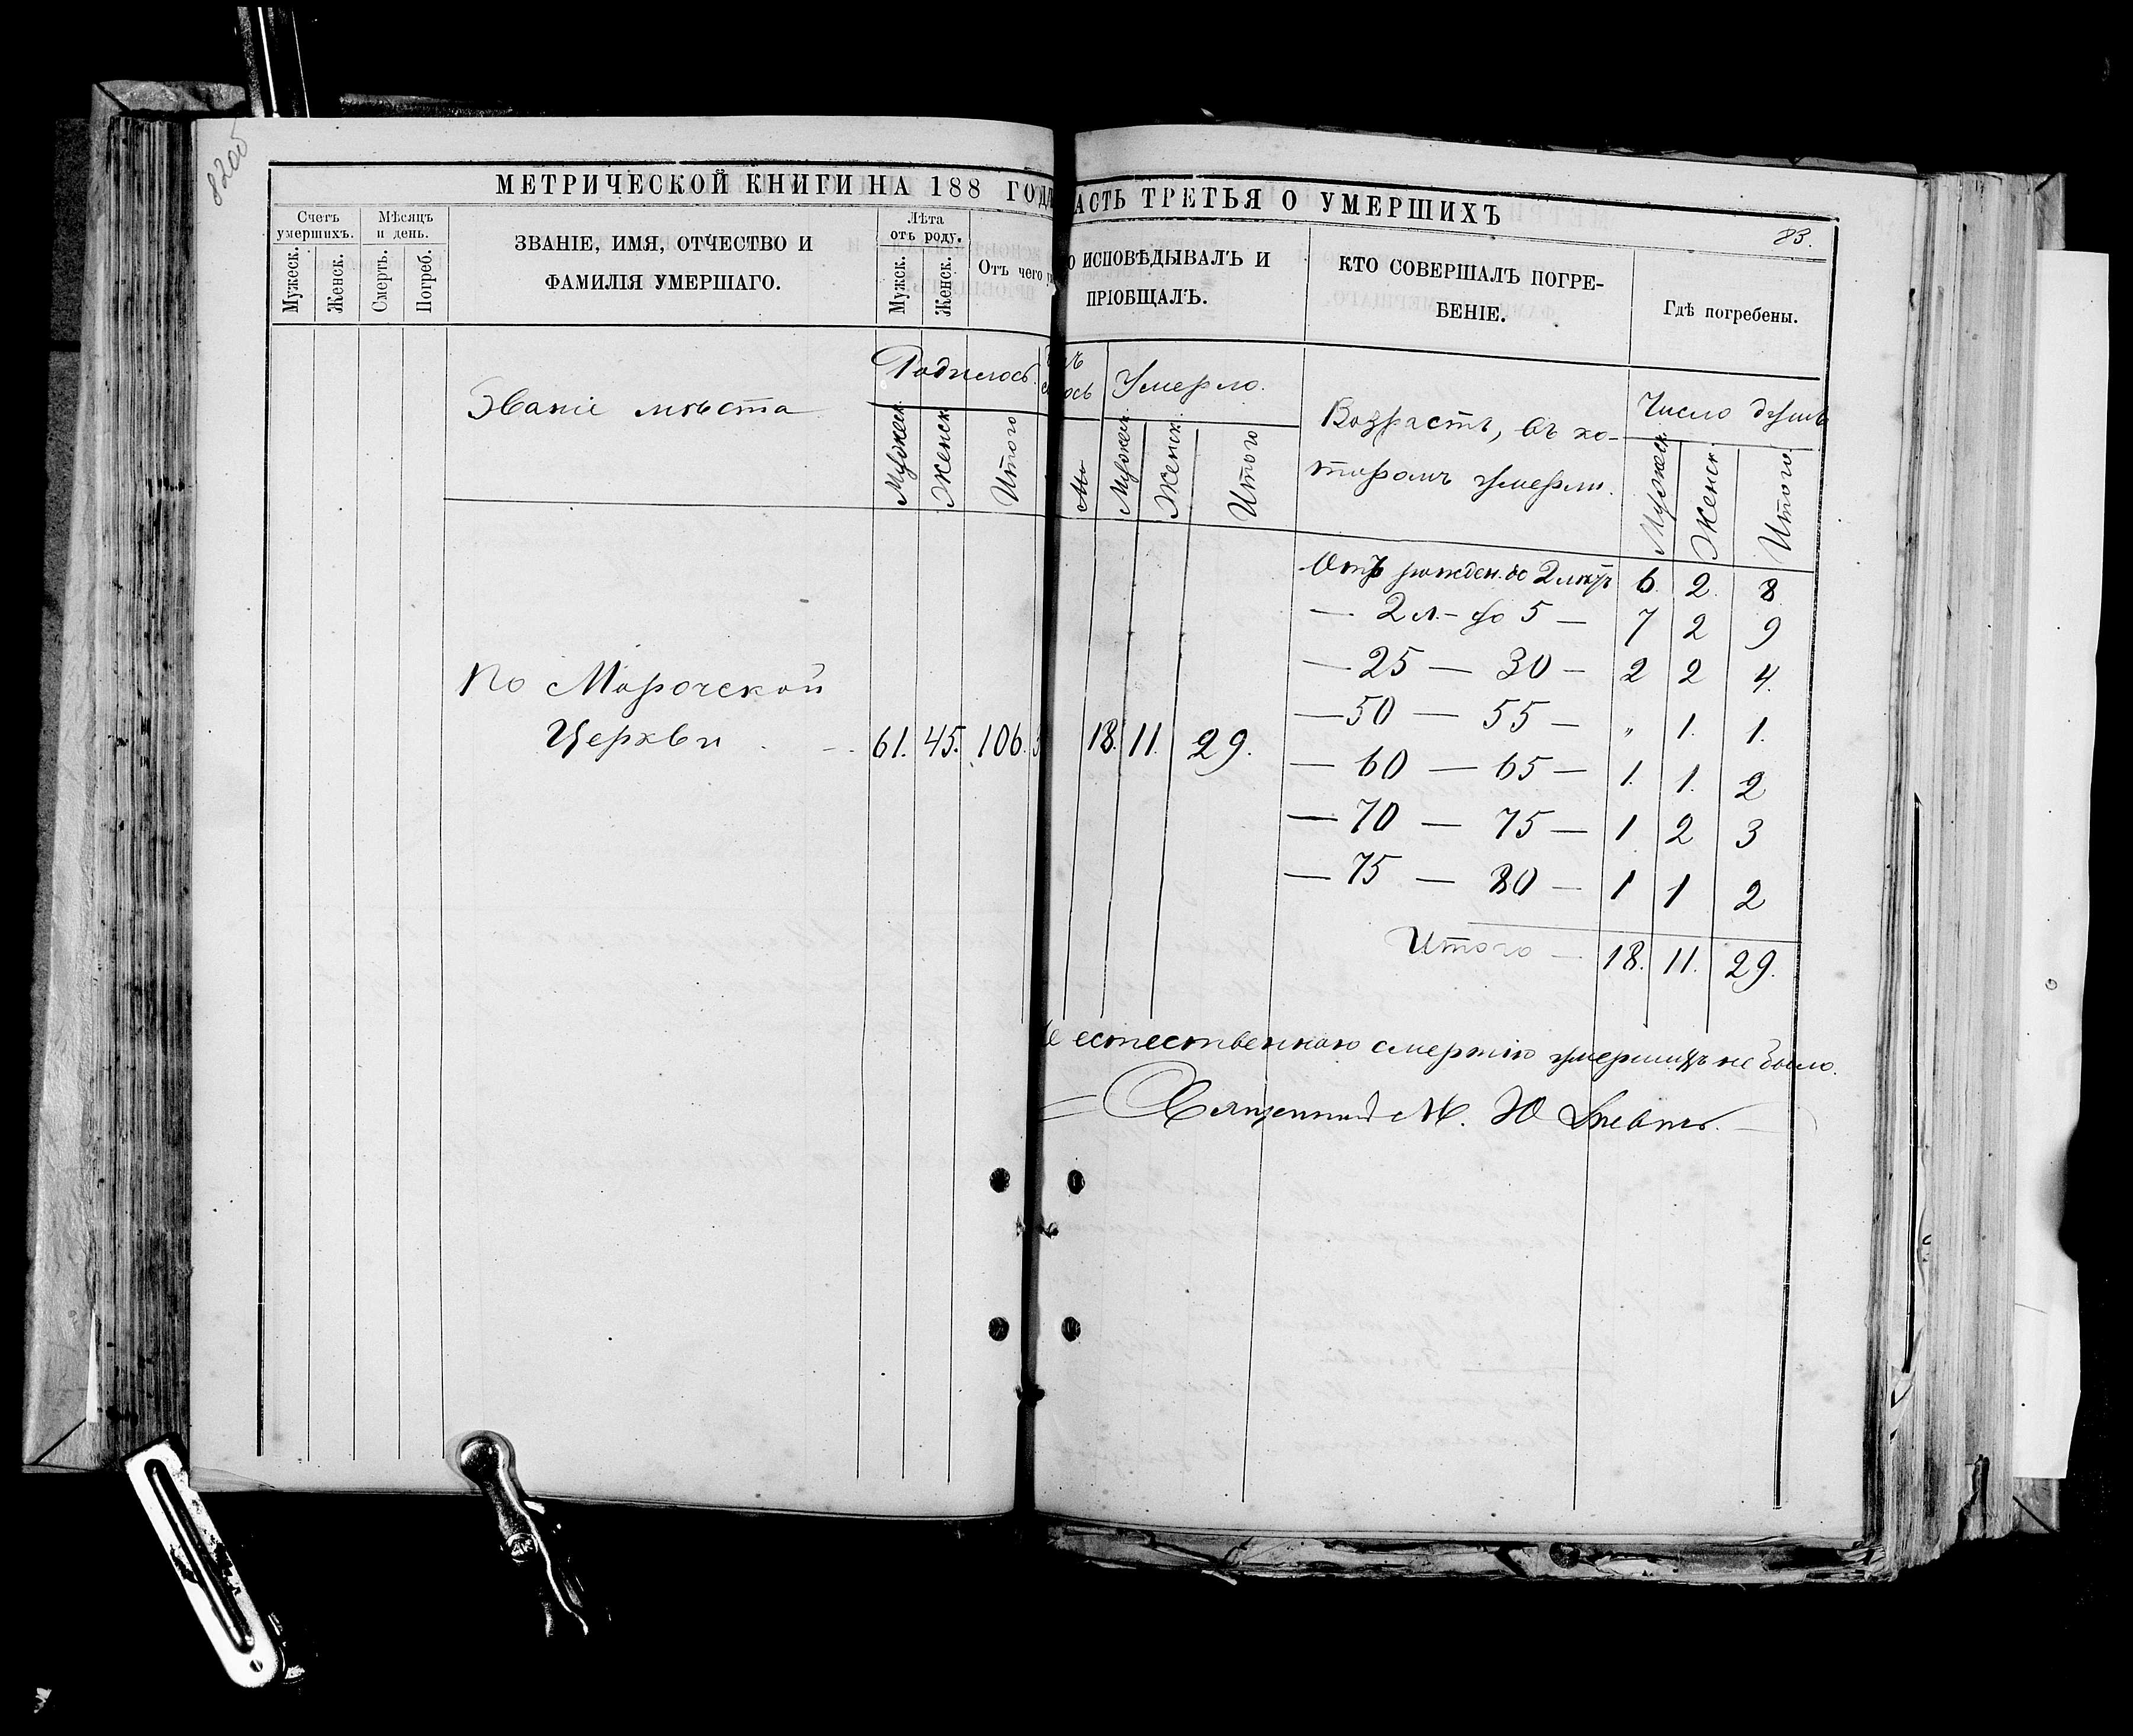 8200
МЕТРИЧЕСКОЙ КНИГИ НА 188 ГОДА
АСТЬ ТРЕТЬЯ О УМЕРШИХЪ
83.
Счетъ умершихъ.
Мужеск.
Женск.
Мѣсяцъ и день.
Смерть.
Погреб.
ЗВАНІЕ, ИМЯ, ОТЧЕСТВО И
ФАМИЛІЯ УМЕРШАГО.
Лѣта отъ роду.
Мужск.
Женск.
Отъ чего
О ИСПОВѢДЫВАЛЪ И
ПРІОБЩАЛЪ.
КТО СОВЕРШАЛЪ ПОГРЕ-
БЕНІЕ.
Гдѣ погребены.
Званіе мѣста
Родилось
Мужеск
Женск
Итого
ось
Умерло.
Мужеск
Женск
Итого
Возрастъ, въ ко-
торомъ умерли.
Число душъ
Мужеск
Женск
Итого
По Морочской
Церкви 61. 45. 106. 18. 11. 29.
Отъ рожден. до 2 лѣтъ 6. 2. 8.
— 2 л. — до 5 — 7 2 9
— 25 — 30 — 2 2 4.
— 50 — 55 — " 1. 1.
— 60 — 65 — 1. 1. 2
— 70 — 75 — 1 2 3
— 75 — 80 — 1 1 2
Итого — 18. 11. 29.
е естественною смертію умершихъ не было.
Священник М. Ю